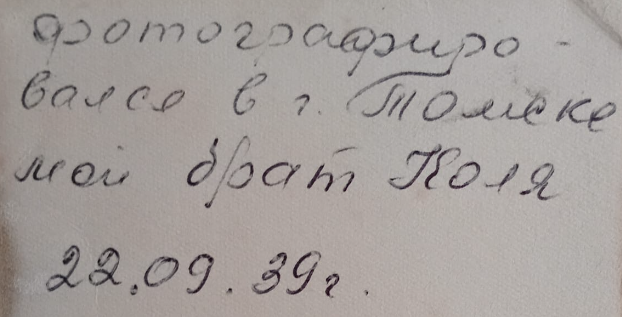 фотографиро-
вался в г. Томске
мой брат Коля
22.09.39г.